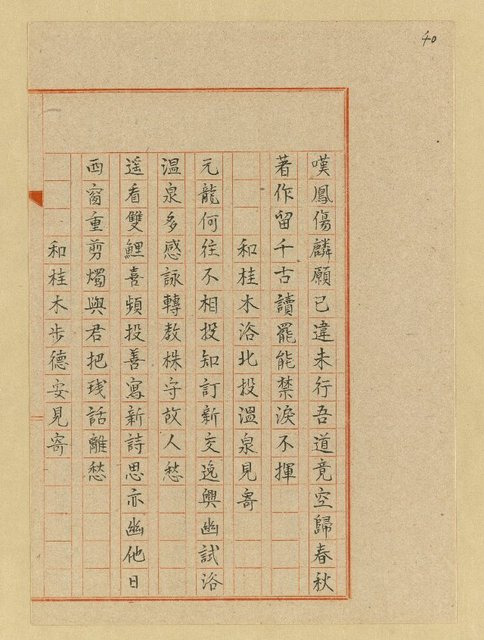 40
嘆鳳傷麟願已違未行吾道竟空歸春秋
著作留千古讀罷能禁淚不揮
和桂木浴北投溫泉見寄
元龍何往不相投知訂新交逸興幽試浴
溫泉多感詠轉教株守故人愁
遥看雙鯉喜頻投善寫新詩思亦幽他日
西窗重剪燭與君把残話離愁
和桂木步德安見寄